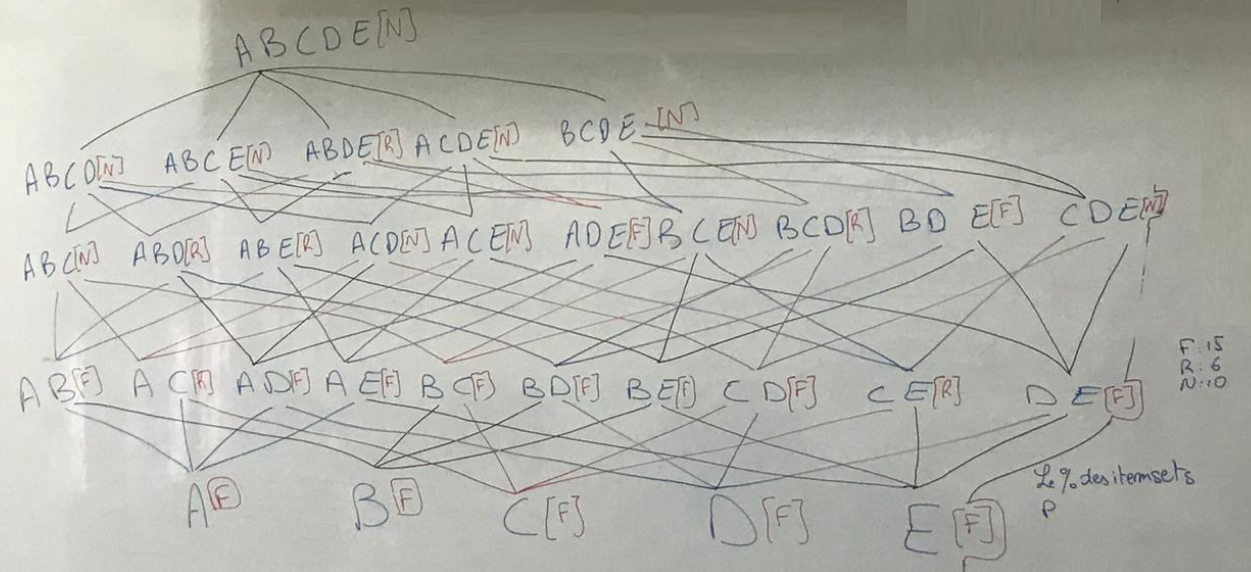 ABCDE[N]
ABCD[N] ABCE[N] ABDE[R] ACDE[N] BCDE[N]
ABC[N] ABD[R] ABE[R] ACD[N] ACE[N] ADE[F] BCE[N] BCD[R] BDE[F] CDE[N]
AB[F] AC[R] AD[F] AE[F] BC[F] BD[F] BE[F] CD[F] CE[R] DE[F]
F:15
R:6
N:10
A[F] B[F] C[F] D[F] E[F]
Le % des itemsets
P